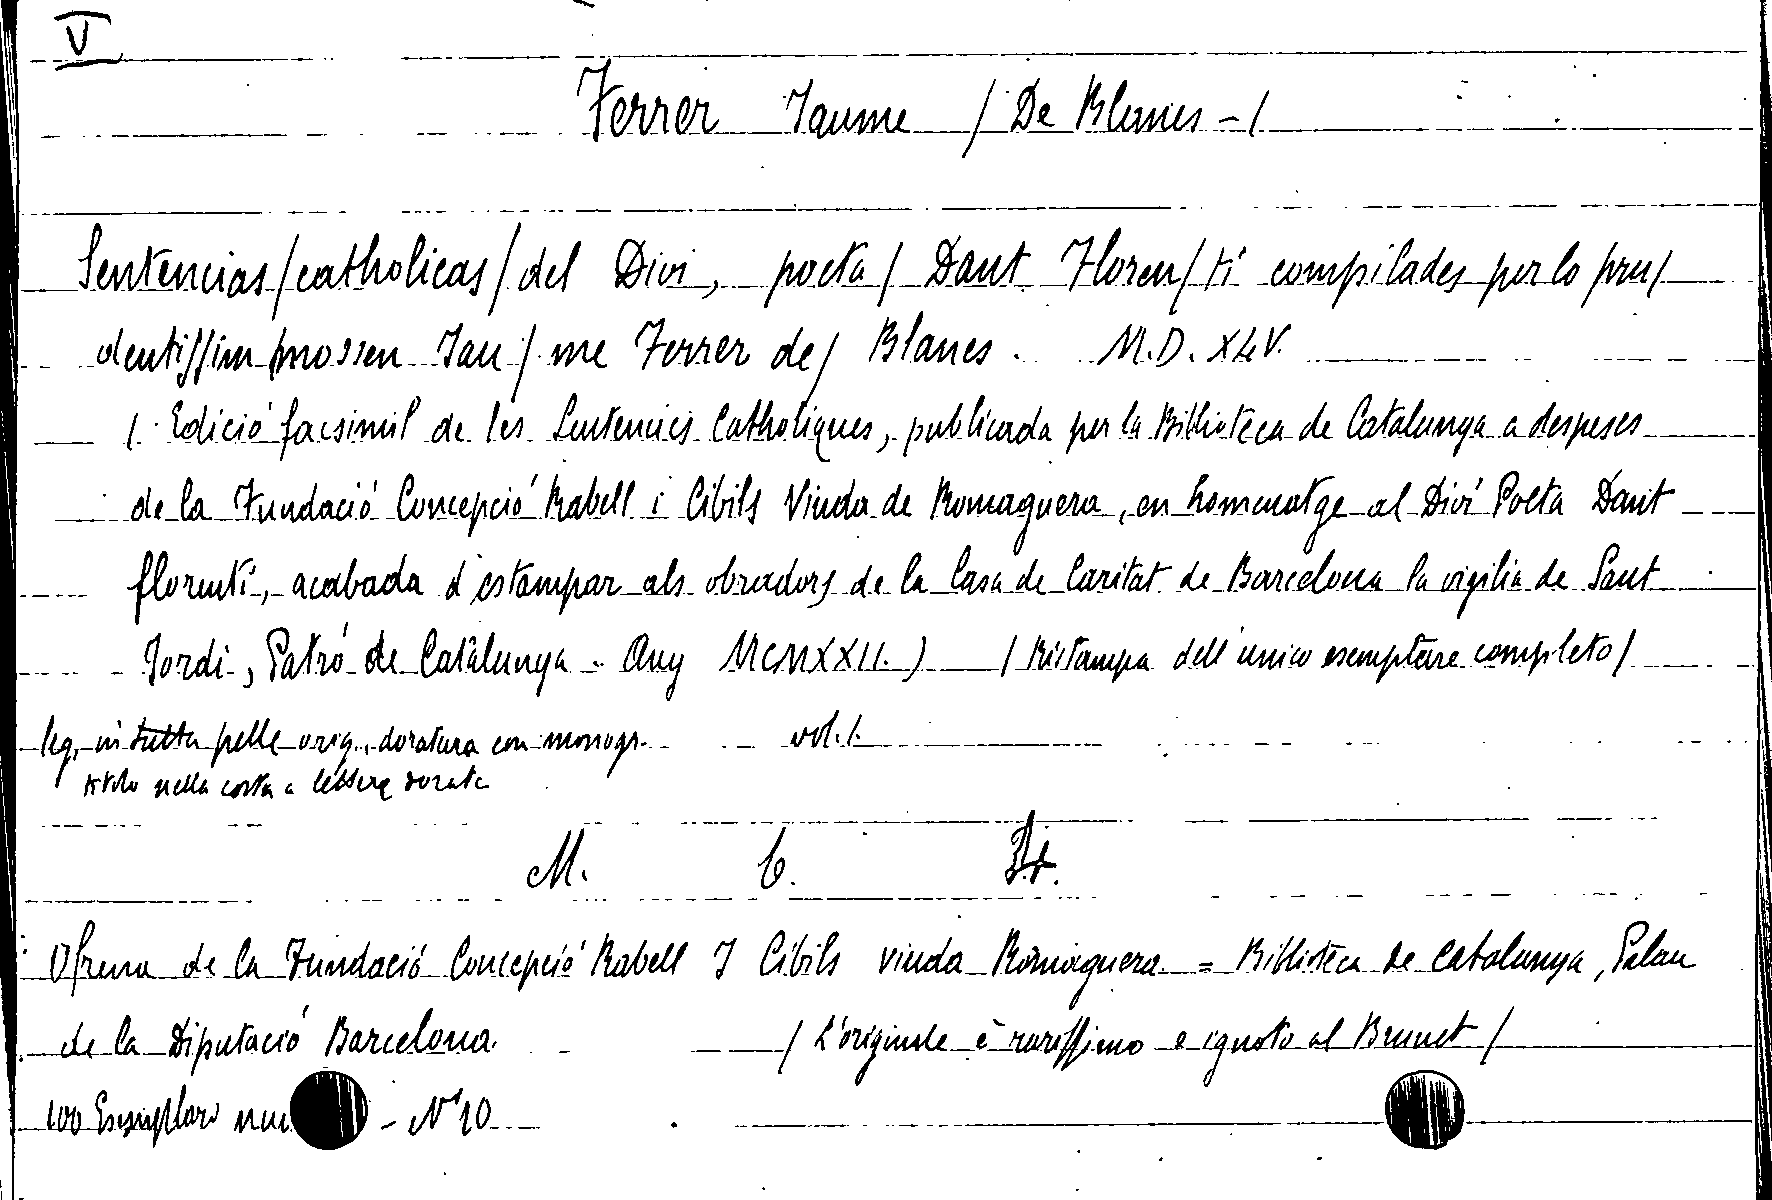 V
Ferrer Jaume / De Blanes - /
Sentencias / catholicas / del Divi, poeta / Dant Floren / ti compilades per lo pru /
dentissim / mossen Jau / me Ferrer de / Blanes. M.D.XLV.
( Edició facsimil de les Sentencies Catholiques, publicada per la Biblioteca de Catalunya a despeses
de la Fundació Concepció Rabell i Cibils Viuda de Romaguera, en homenatge al Diví Poeta Dant
florentí, acabada d'estampar als obradors de la Casa de Caritat de Barcelona la vigilia de Sant
Jordi, Patró de Catalunya - Any MCMXXII. ) / Ristampa dell'unico esemplare completo /
leg. in tutta pelle orig. doratura con monogr. vol. 1.
titolo nella costa a lettere dorate
M. C.
Ofrena de la Fundació Concepció Rabell I Cibils viuda Romaguera = Biblioteca de Catalunya, Palau
de la Diputació Barcelona. / L'originale è rarissimo e ignoto al Brunet /
100 Esemplari - N° 10